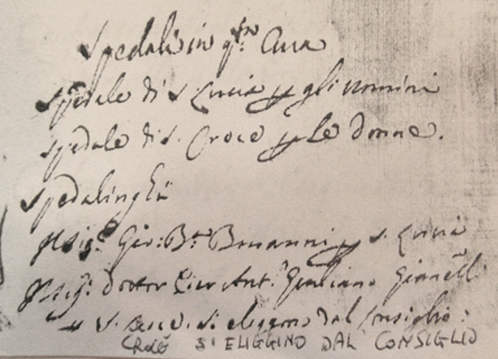 Spedali in q.ta Cura
Spedale di S. Lucia p gli uomini
Spedale di S. Croce p le donne.
Spedalinghi
Sig. Gio: B.a Bonanni p S. Lucia
Dottor Ant.o Giuliano Giannelli
p S. Croce. Si elegono dal Consiglio:
CROCE SI ELIGGINO DAL CONSIGLIO